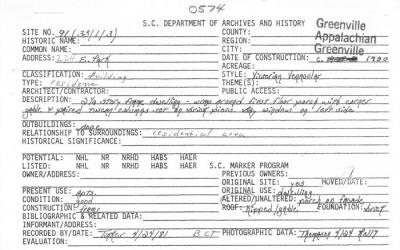 0574
S.C. DEPARTMENT OF ARCHIVES AND HISTORY
SITE NO. 91(.35)(1.3) COUNTY: Greenville
HISTORIC NAME: REGION: Appalachian
COMMON NAME: CITY: Greenville
ADDRESS: 224 E. Park DATE OF CONSTRUCTION: c. 1900
ACREAGE:
CLASSIFICATION: building STYLE: Victorian Vernacular
TYPE: residence THEME(S):
ARCHITECT/CONTRACTOR: PUBLIC ACCESS:
DESCRIPTION: 2½ story frame dwelling - wrap around first floor porch with corner
gable & paired bay windows on left side
OUTBUILDINGS: none
RELATIONSHIP TO SURROUNDINGS: residential area
HISTORICAL SIGNIFICANCE:
POTENTIAL: NHL NR NRHD HABS HAER
LISTED: NHL NR NRHD HABS HAER S.C. MARKER PROGRAM
OWNER/ADDRESS: PREVIOUS OWNERS:
ORIGINAL SITE: yes MOVED/DATE:
PRESENT USE: Apts. ORIGINAL USE: dwelling
CONDITION: good ALTERED/UNALTERED: porch on facade
CONSTRUCTION: frame ROOF: Hipped/gable FOUNDATION: brick
BIBLIOGRAPHIC & RELATED DATA:
INFORMANT:
RECORDED BY/DATE: 4/29/81 BCT PHOTOGRAPHIC DATA: Thompson 4/29
EVALUATION: